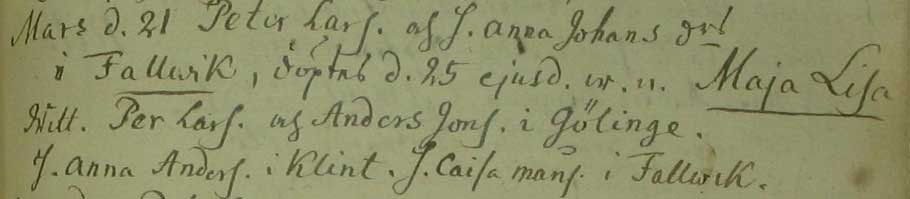 Mars d. 21 Peter Lars. ok J. Anna Johans drs
i Fallwik, döptes d. 25 ejusd. w. n. Maja Lisa
Witt. Per Lars. ok Anders Jons. i Gölinge.
J. Anna Anders. i Klint. J. Caisa Måns. i Fallwik.